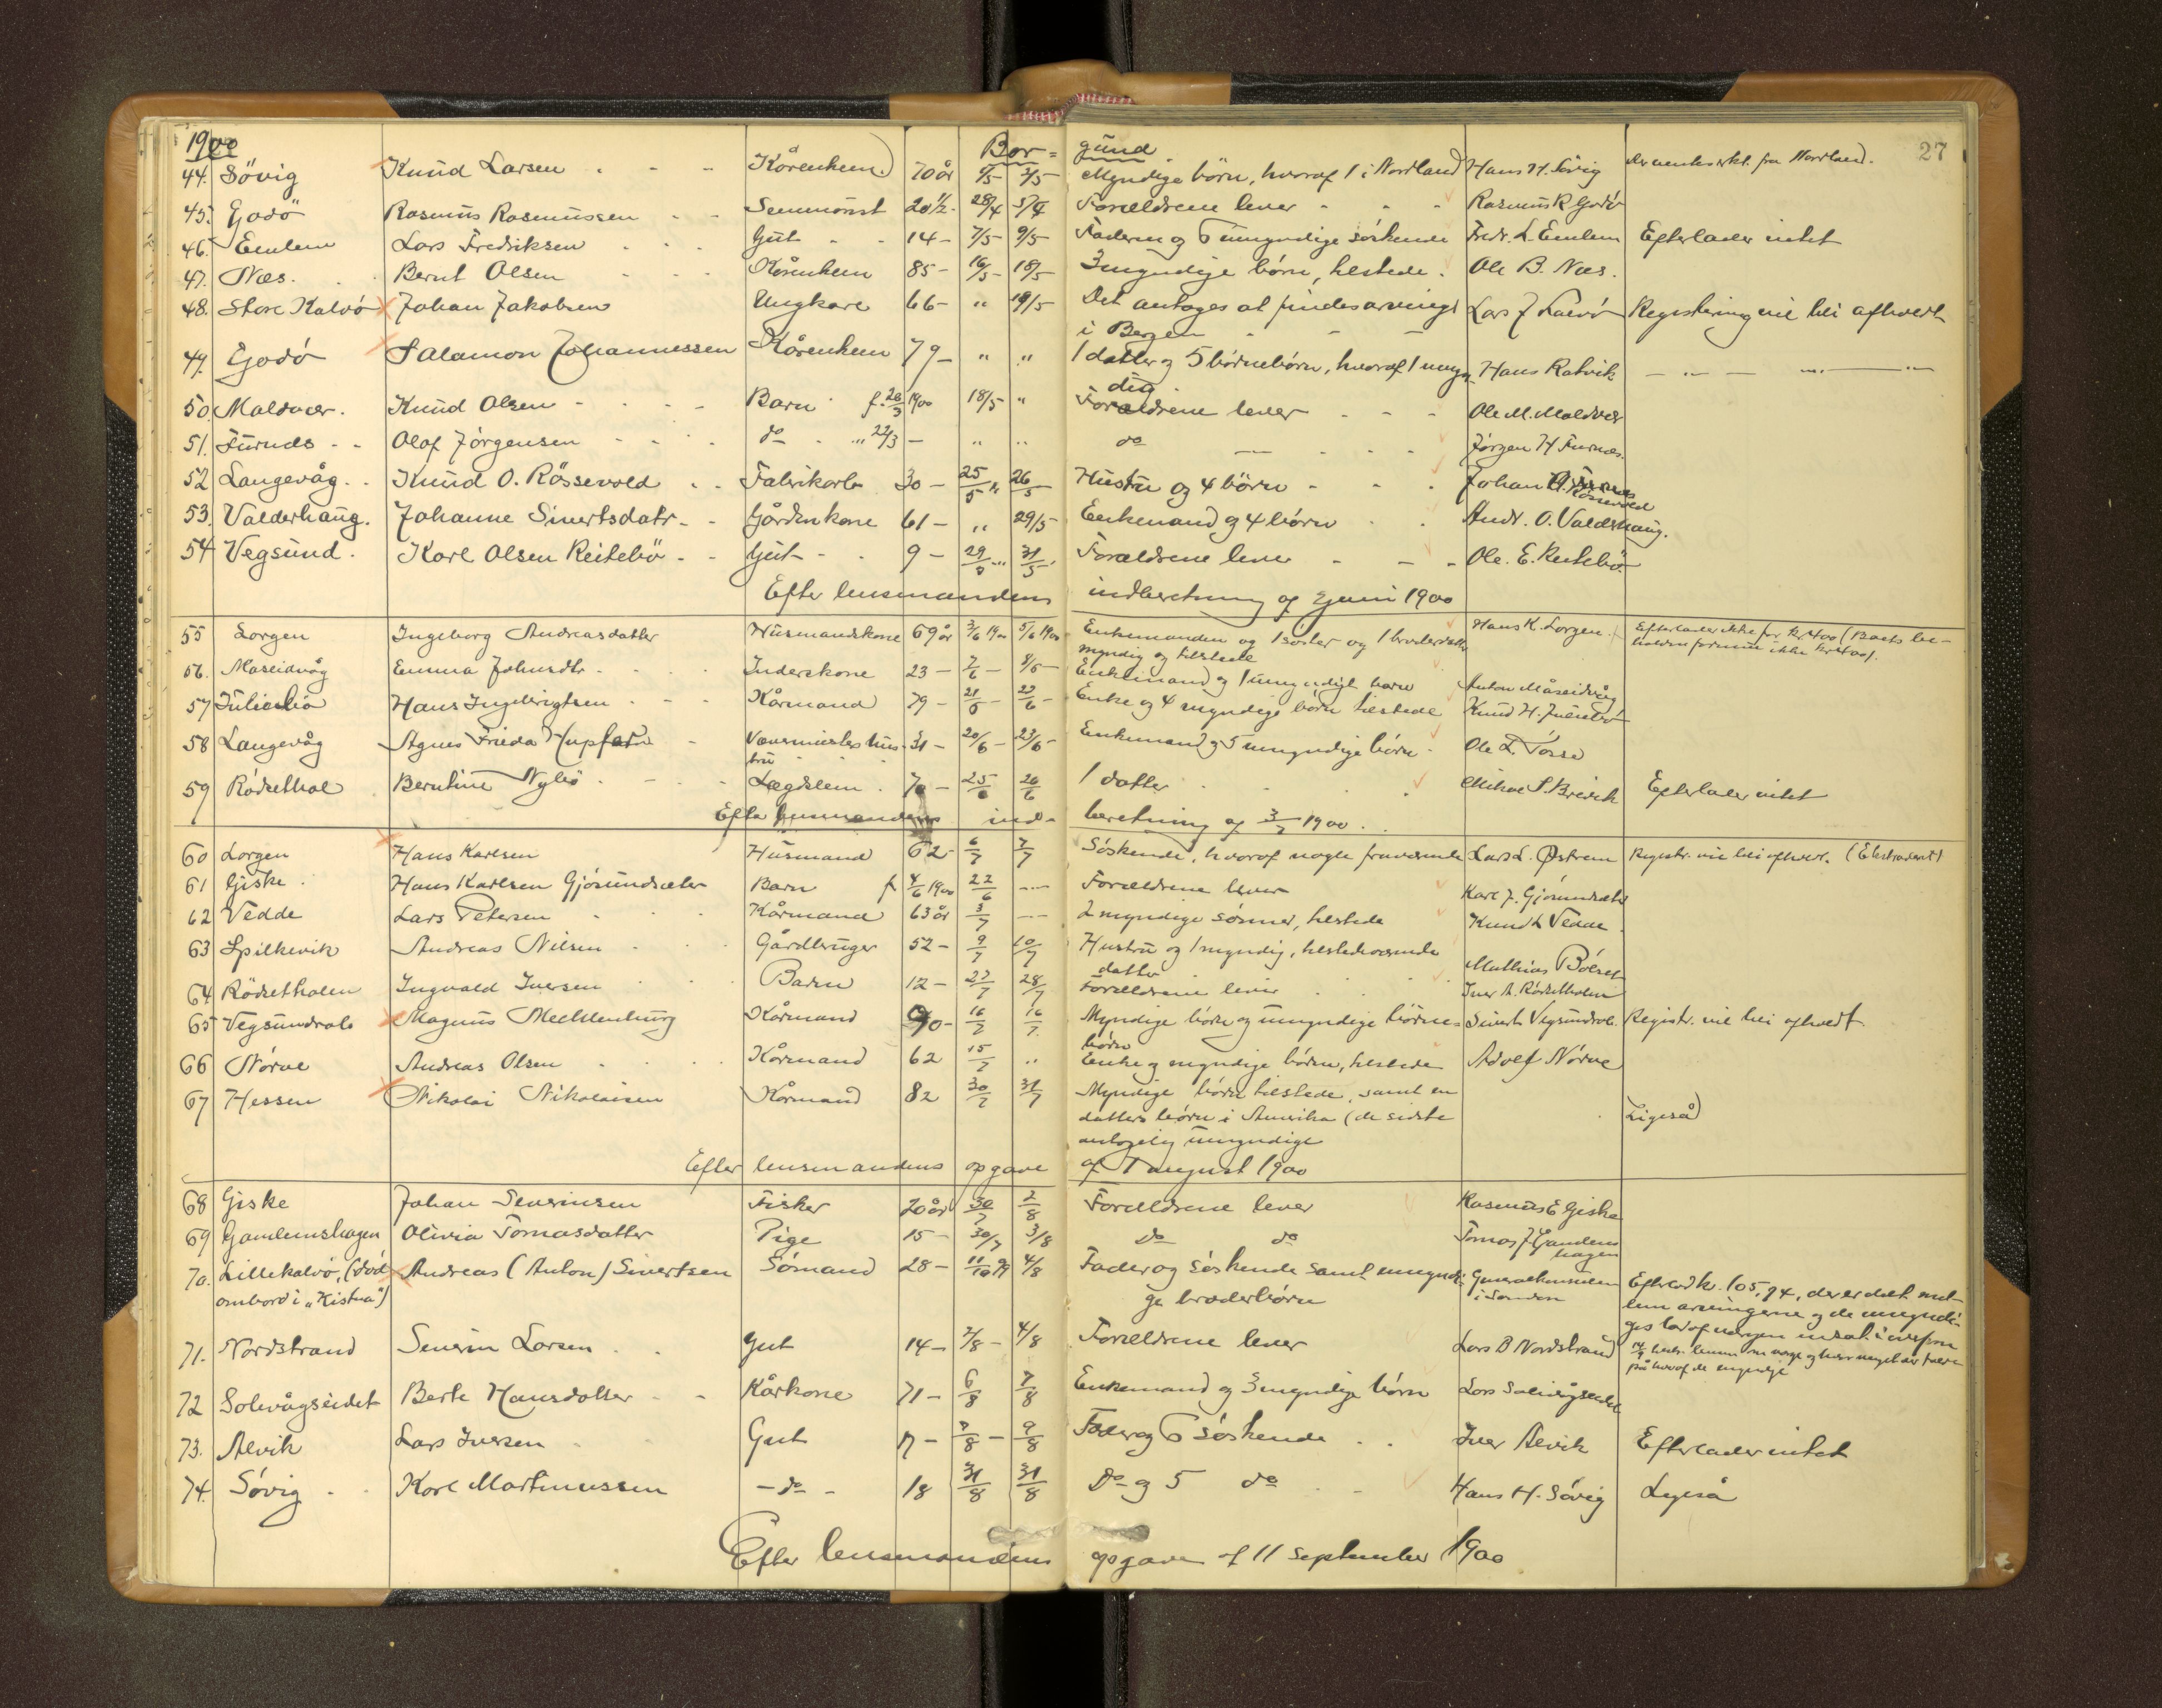 1900 Bor= gund 27
44. Sövig Knud Larsen Kårenkem. 70 år 2/5 Myndige börn, hvoraf 1 i Nordland Hans H. Sövig fra Nordland.
45. Godö Rasmus Rasmussen Seminarist 20½ - 28/4 Forældrene lever Rasmus R Godö
46. Emlem Lars Fredriksen Gut 14 - 7/5 - 9/5 - Faderen og 6 umyndige söskende Fredr. L. Emlem Efterlader intet
47. Næs. Bernt Olsen Kårenkem 85 - 16/5 - 18/5 3 myndige börn, tilstede. Ole B. Næs.
48. Store Kalvö Johan Jakobsen Ungkarl 66 - " 19/5 - Det antages at findes arvinger Lars J Kalvö Registering vil bli afholdt
i Bergen
49. Godö Salamon Johannessen Kårenkem 79 - " " 1 datter og 5 börnebörn, hvoraf 1 umyn- Hans Ratvik - " - " - "
dig.
50. Maldvær. Knud Olsen Barn f. 20/3 1900 18/5 " Forældrene lever Ole M. Maldvær
51. Furnæs Olaf Jörgensen do " 22/3 - " " do Jörgen H Furnæs.
52 Langevåg. Knud O. Rössevold Fabrikarb. 30 - 25/5 " 26/5 Hustru og 4 börn Johan Rössevold
53. Valderhaug. Johanne Sivertsdatr. Gårdmkone 61 - " 29/5 - Enkemand og 4 börn Andr. O. Valderhaug.
54 Vegsund. Karl Olsen Reitebö Gut 9 - 29/5 31/5 Forældrene lever Ole. E. Reitebö
Efter lensmandens indberetning af 2 juni 1900
55 Lorgen Ingeborg Andreasdatter Husmandskone 69 år 3/6 1900 5/6 1900 Enkemanden og 1 söster og 1 broderdatter Hans K. Lorgen. Efterlader ikke for kr 400 (Boets be-
myndig og tilstede holdne formue ikke kr 400).
56. Maseidvåg Emma Johnsdtr. Inderskone 23 - 7/6 - 8/6 - Enkemand og 1 umyndigt barn Anton Måseidvåg
57 Juliebö Hans Ingebrigtsen Kårmand 79 - 21/6 - 22/6 - Enke og 4 myndige börn tilstede Knud H. Juliebö
58 Langevåg Agnes Frieda Hupfer Vævermesters hus- 31 - 20/6 - 23/6 - Enkemand og 5 umyndige börn Ole L. Fosse
tru
59 Rödsethol Berntine Nybö Lægdslem. 70 - 25/6 26/6 1 datter Mikal P. Breivik Efterlader intet
Efter lensmandens ind- beretning af 3/7 1900.
60 Lorgen Hans Karlsen Husmand 62 - 6/7 7/7 Söskende, hvoraf nogle fraværende Lars L. Östrem Registr. vil bli afholdt.
61 Giske Hans Karlsen Gjösundsæter Barn f 4/6 1900 22/6 - " - Forældrene lever Karl J. Gjösundsæter
62 Vedde Lars Petersen Kårmand 63 år 3/7 - " - 2 myndige sönner, tilstede Knud L Vedde
63 Spilkevik Andreas Nilsen Gårdbruger 52 - 9/7 10/7 Hustru og 1 myndig, tilstedeværende Mathias Bölset
datter
64 Rödsetholen Ingvald Iversen Barn 12 - 27/7 28/7 Forældrene lever Iver A. Rödsetholen
65 Vegsundrab. Magnus Mecklenburg Kårmand 90 - 16/7 16/7 Myndige börn og umyndige börne- Sivert Vegsundrab. Registr. vil bli afholdt
börn
66 Nörve Andreas Olsen Kårmand 62 15/7 " Enke og myndige börn, tilstede Adolf Nörve
67 Hessen Nikolai Nikolaisen Kårmand 82 30/7 31/7 Myndige börn tilstede, samt en
datters börn i Amerika (de sidste Ligeså
antagelig umyndige
Efter lensmandens opgave af 1 august 1900
68 Giske Johan Severinsen Fisker 20 år 30/7 2/8 Forældrene lever Rasmus E Giske
69 Gamlemshagen Olivia Tomasdatter Pige 15 - 30/7 3/8 do do Tomas J Gamlems
hagen
70. Lillekalvö, (död Andreas (Anton) Sivertsen Sömand 28 - 11/10 99 4/8 Fader og söskende samt umyndi- Generalkonsulen Efterlod kr. 105,74, der er delt mel-
ombord i "Kistna") ge broderbörn i London lem arvingerne og de umyndi-
ges lod af
71. Nordstrand Severin Larsen Gut 14 - 3/8 - 4/8 Forældrene lever Lars B Nordstrand
72 Solevågseidet Berte Hansdatter Kårkone 71 - 6/8 7/8 Enkemand og 3 myndige börn Lars Solevågseidet
73. Alvik Lars Iversen Gut 17 - 8/8 - 9/8 Fader og 6 söskende Iver Alvik Efterlader intet
74. Sövig Karl Martinussen - do - 18 31/8 31/8 Do og 5 do Hans H. Sövig Ligeså
Efter lensmandens opgave af 11 september 1900